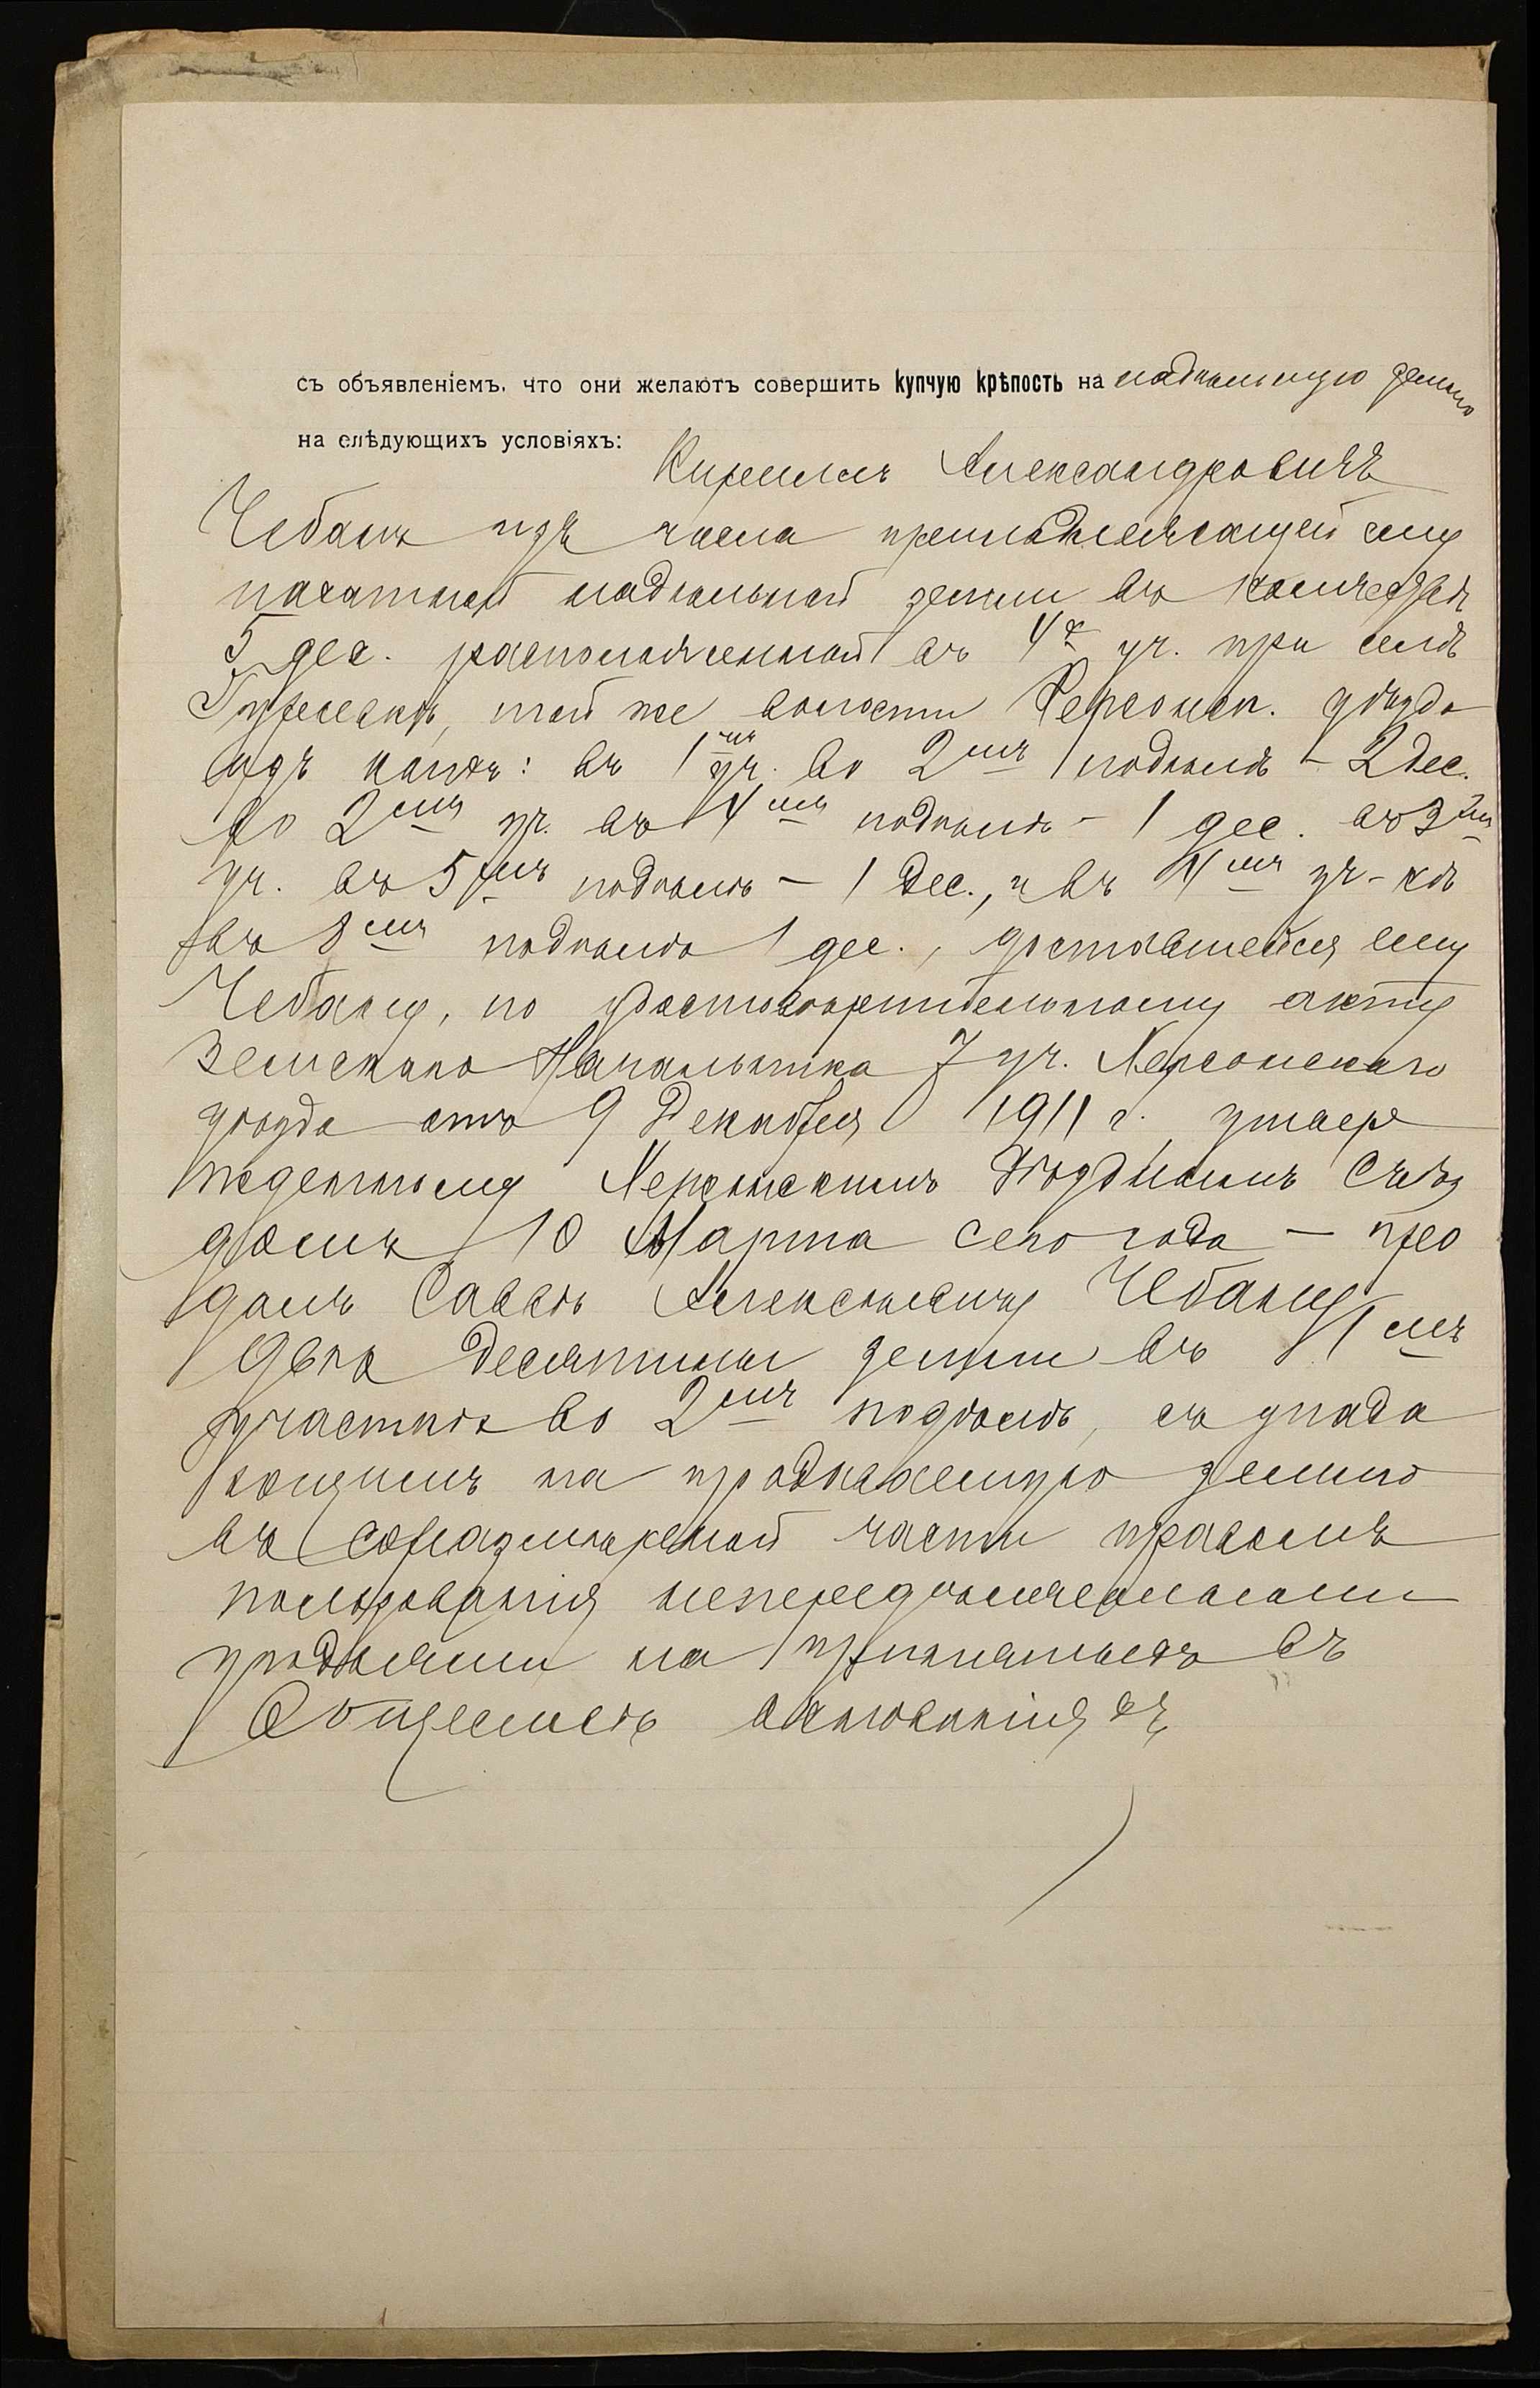 съ объявленіемъ, что они желаютъ совершить купчую крѣпость на надѣльную землю
на слѣдующихъ условіяхъ:
Кириллъ Александровичъ
Чебанъ изъ числа принадлежащей ему
пахатной надѣльной земли въ количествѣ
5 дес. расположенной въ 4х уч. при селѣ
той же волости Херсонск. уѣзда
изъ коихъ: въ 1мъ уч. во 2мъ подѣлѣ – 2 дес.
во 2мъ уч. въ 4мъ подѣлѣ – 1 дес. въ 3мъ
уч. въ 5мъ подѣлѣ – 1 дес., и въ 4мъ уч-кѣ
въ 8мъ подѣлѣ 1 дес., доставшейся ему
Чебану, по удостовѣрительному акту
Земскаго Начальника 7 уч. Херсонскаго
уѣзда отъ 9 Декабря 1911 г. утвер
жденному Херсонскимъ Уѣзднымъ Съѣз
домъ 10 Марта сего года – про
далъ Саввѣ Алексѣевичу Чебану
двѣ десятины земли въ 1мъ
участкѣ во 2мъ подѣлѣ, съ упада
ющимъ на продаваемую землю
въ соразмѣрной части правомъ
пользованія непередѣляемыми
угодьями на принятыхъ въ
Обществѣ основаніяхъ